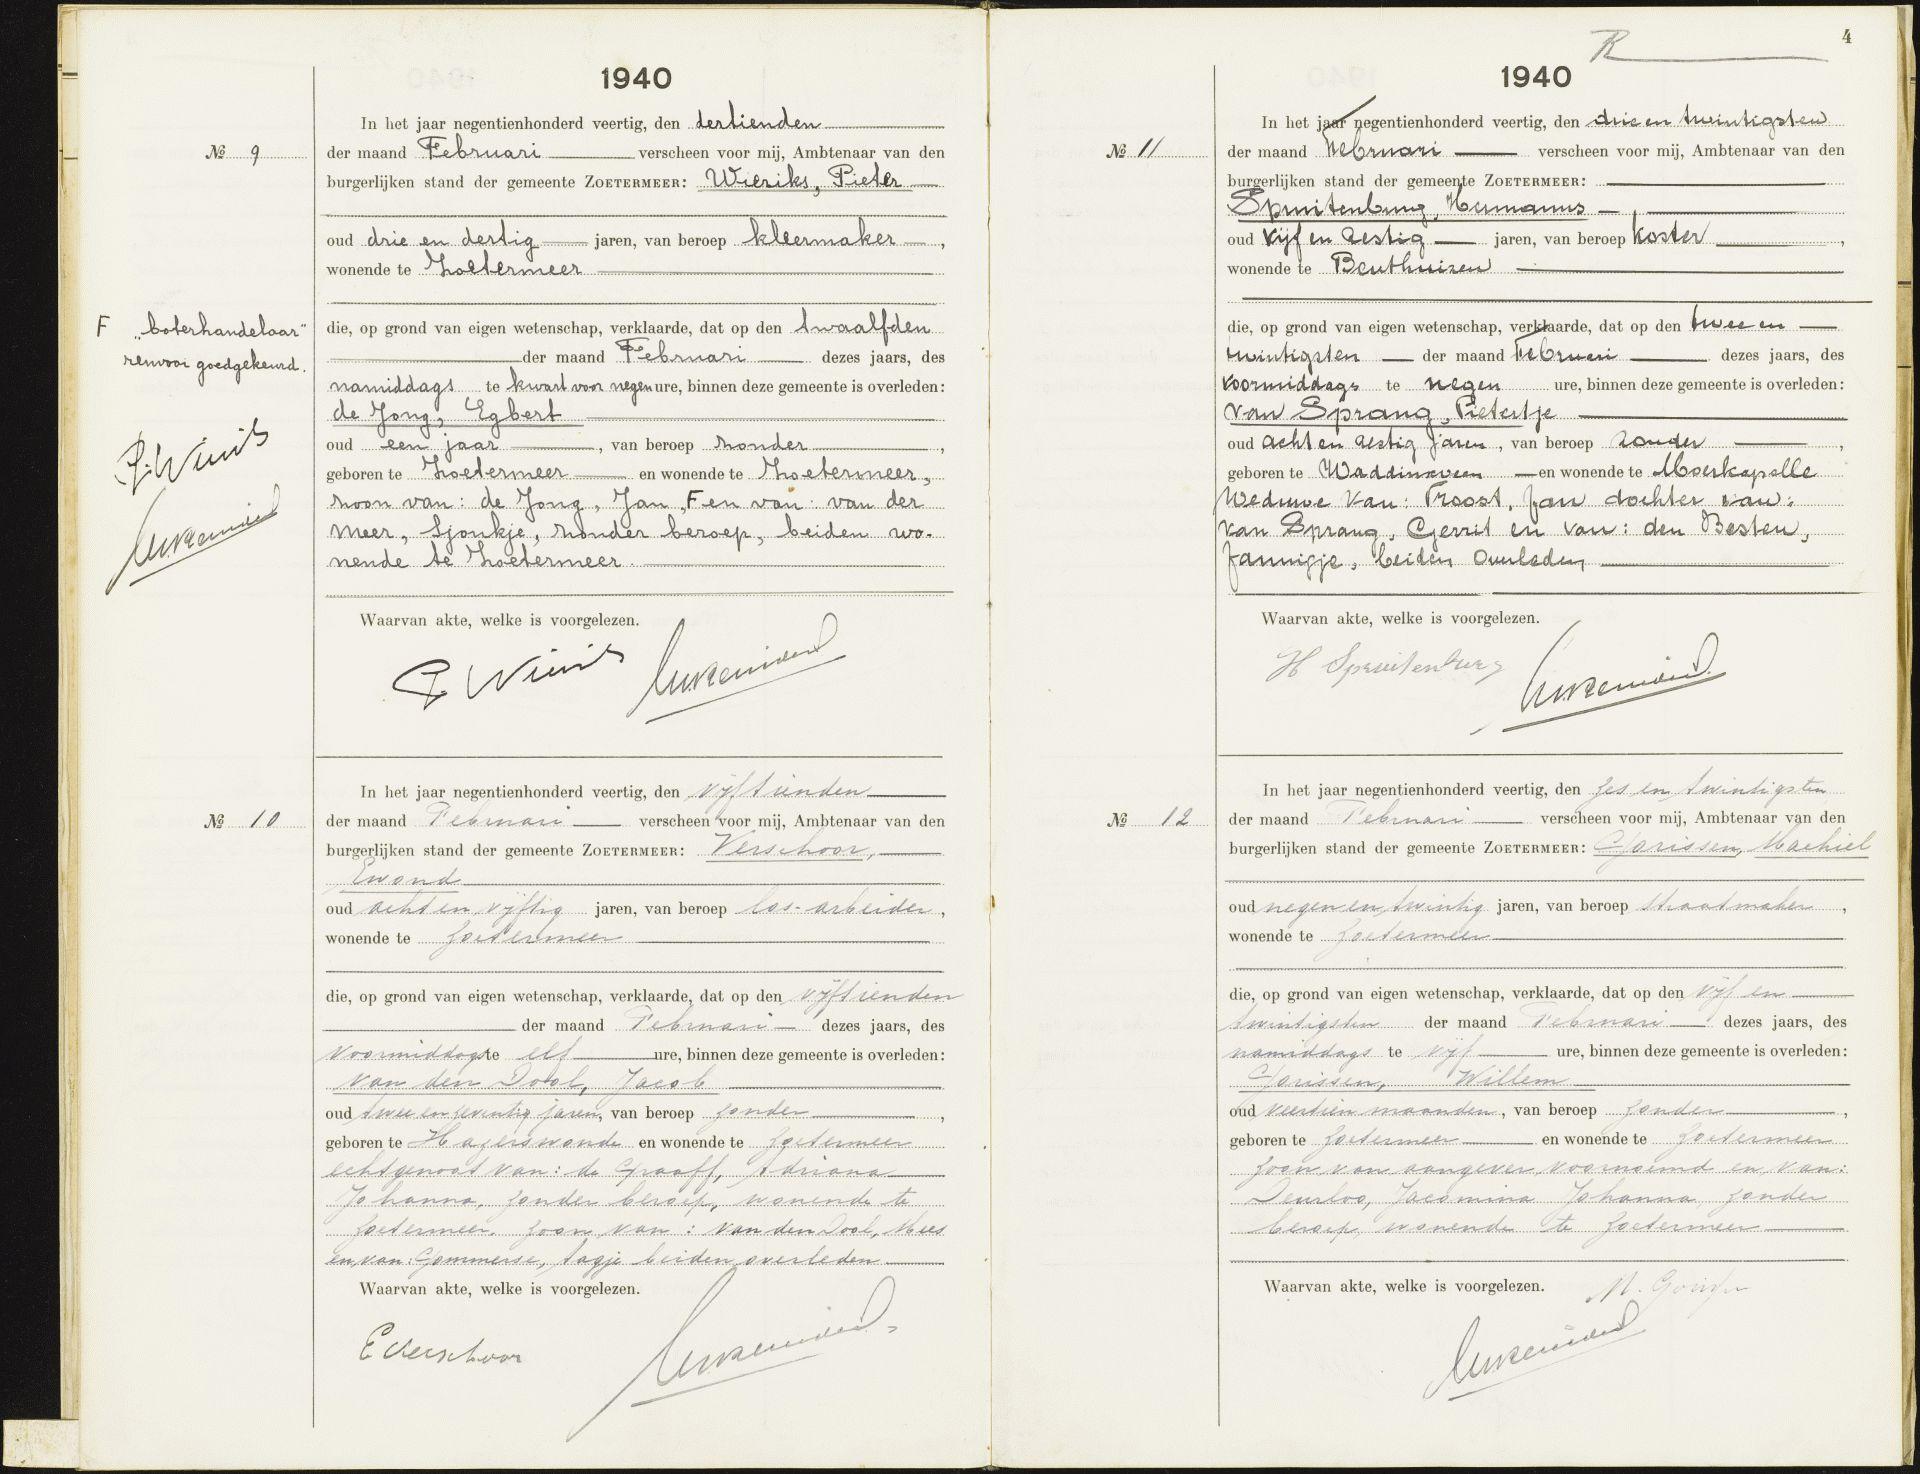 1940
No 9
In het jaar negentienhonderd veertig, den dertienden
der maand Februari verscheen voor mij, Ambtenaar van den
burgerlijken stand der gemeente ZOETERMEER: Wieriks, Pieter
oud drie en dertig jaren, van beroep kleermaker,
wonende te Zoetermeer
F "boterhandelaar"
renvooi goedgekeurd.
die, op grond van eigen wetenschap, verklaarde, dat op den twaalfden
der maand Februari dezes jaars, des
namiddags te kwart voor negen ure, binnen deze gemeente is overleden:
de Jong, Egbert
oud een jaar, van beroep zonder,
geboren te Zoetermeer en wonende te Zoetermeer,
zoon van: de Jong, Jan, F en van: van der
Meer, Sjoukje, zonder beroep, beiden wo-
nende te Zoetermeer.
Waarvan akte, welke is voorgelezen.
No 10
In het jaar negentienhonderd veertig, den vijftienden
der maand Februari verscheen voor mij, Ambtenaar van den
burgerlijken stand der gemeente ZOETERMEER: Verschoor,
Ewoud
oud acht en vijftig jaren, van beroep los-arbeider,
wonende te Zoetermeer
die, op grond van eigen wetenschap, verklaarde, dat op den vijftienden
der maand Februari dezes jaars, des
voormiddags te elf ure, binnen deze gemeente is overleden:
van den Dool, Jacob
oud twee en zeventig jaren, van beroep zonder,
geboren te Hazerswoude en wonende te Zoetermeer
echtgenoot van: de Graaff, Adriana
Johanna, zonder beroep, wonende te
Zoetermeer, zoon van: van den Dool, Mees
en van: Gommerse, Aagje beiden overleden
Waarvan akte, welke is voorgelezen.
E Verschoor
4
R
1940
No 11
In het jaar negentienhonderd veertig, den drie en twintigsten
der maand Februari verscheen voor mij, Ambtenaar van den
burgerlijken stand der gemeente ZOETERMEER:
Spruitenburg, Hermanus
oud vijf en zestig jaren, van beroep koster,
wonende te Benthuizen
die, op grond van eigen wetenschap, verklaarde, dat op den twee en
twintigsten der maand Februari dezes jaars, des
voormiddags te negen ure, binnen deze gemeente is overleden:
van Sprang, Pietertje
oud acht en zestig jaren, van beroep zonder,
geboren te Waddinxveen en wonende te Moerkapelle
Weduwe van: Troost, Jan dochter van:
van Sprang, Gerrit en van: den Besten,
Jannigje, beiden overleden
Waarvan akte, welke is voorgelezen.
H Spruitenburg
No 12
In het jaar negentienhonderd veertig, den zes en twintigsten
der maand Februari verscheen voor mij, Ambtenaar van den
burgerlijken stand der gemeente ZOETERMEER: Gorissen, Machiel
oud negen en twintig jaren, van beroep straatmaker,
wonende te Zoetermeer
die, op grond van eigen wetenschap, verklaarde, dat op den vijf en
twintigsten der maand Februari dezes jaars, des
namiddags te vijf ure, binnen deze gemeente is overleden:
Gorissen, Willem
oud veertien maanden, van beroep zonder,
geboren te Zoetermeer en wonende te Zoetermeer
zoon van aangever voornoemd en van:
Deurloo, Jacomina Johanna, zonder
beroep, wonende te Zoetermeer
Waarvan akte, welke is voorgelezen.